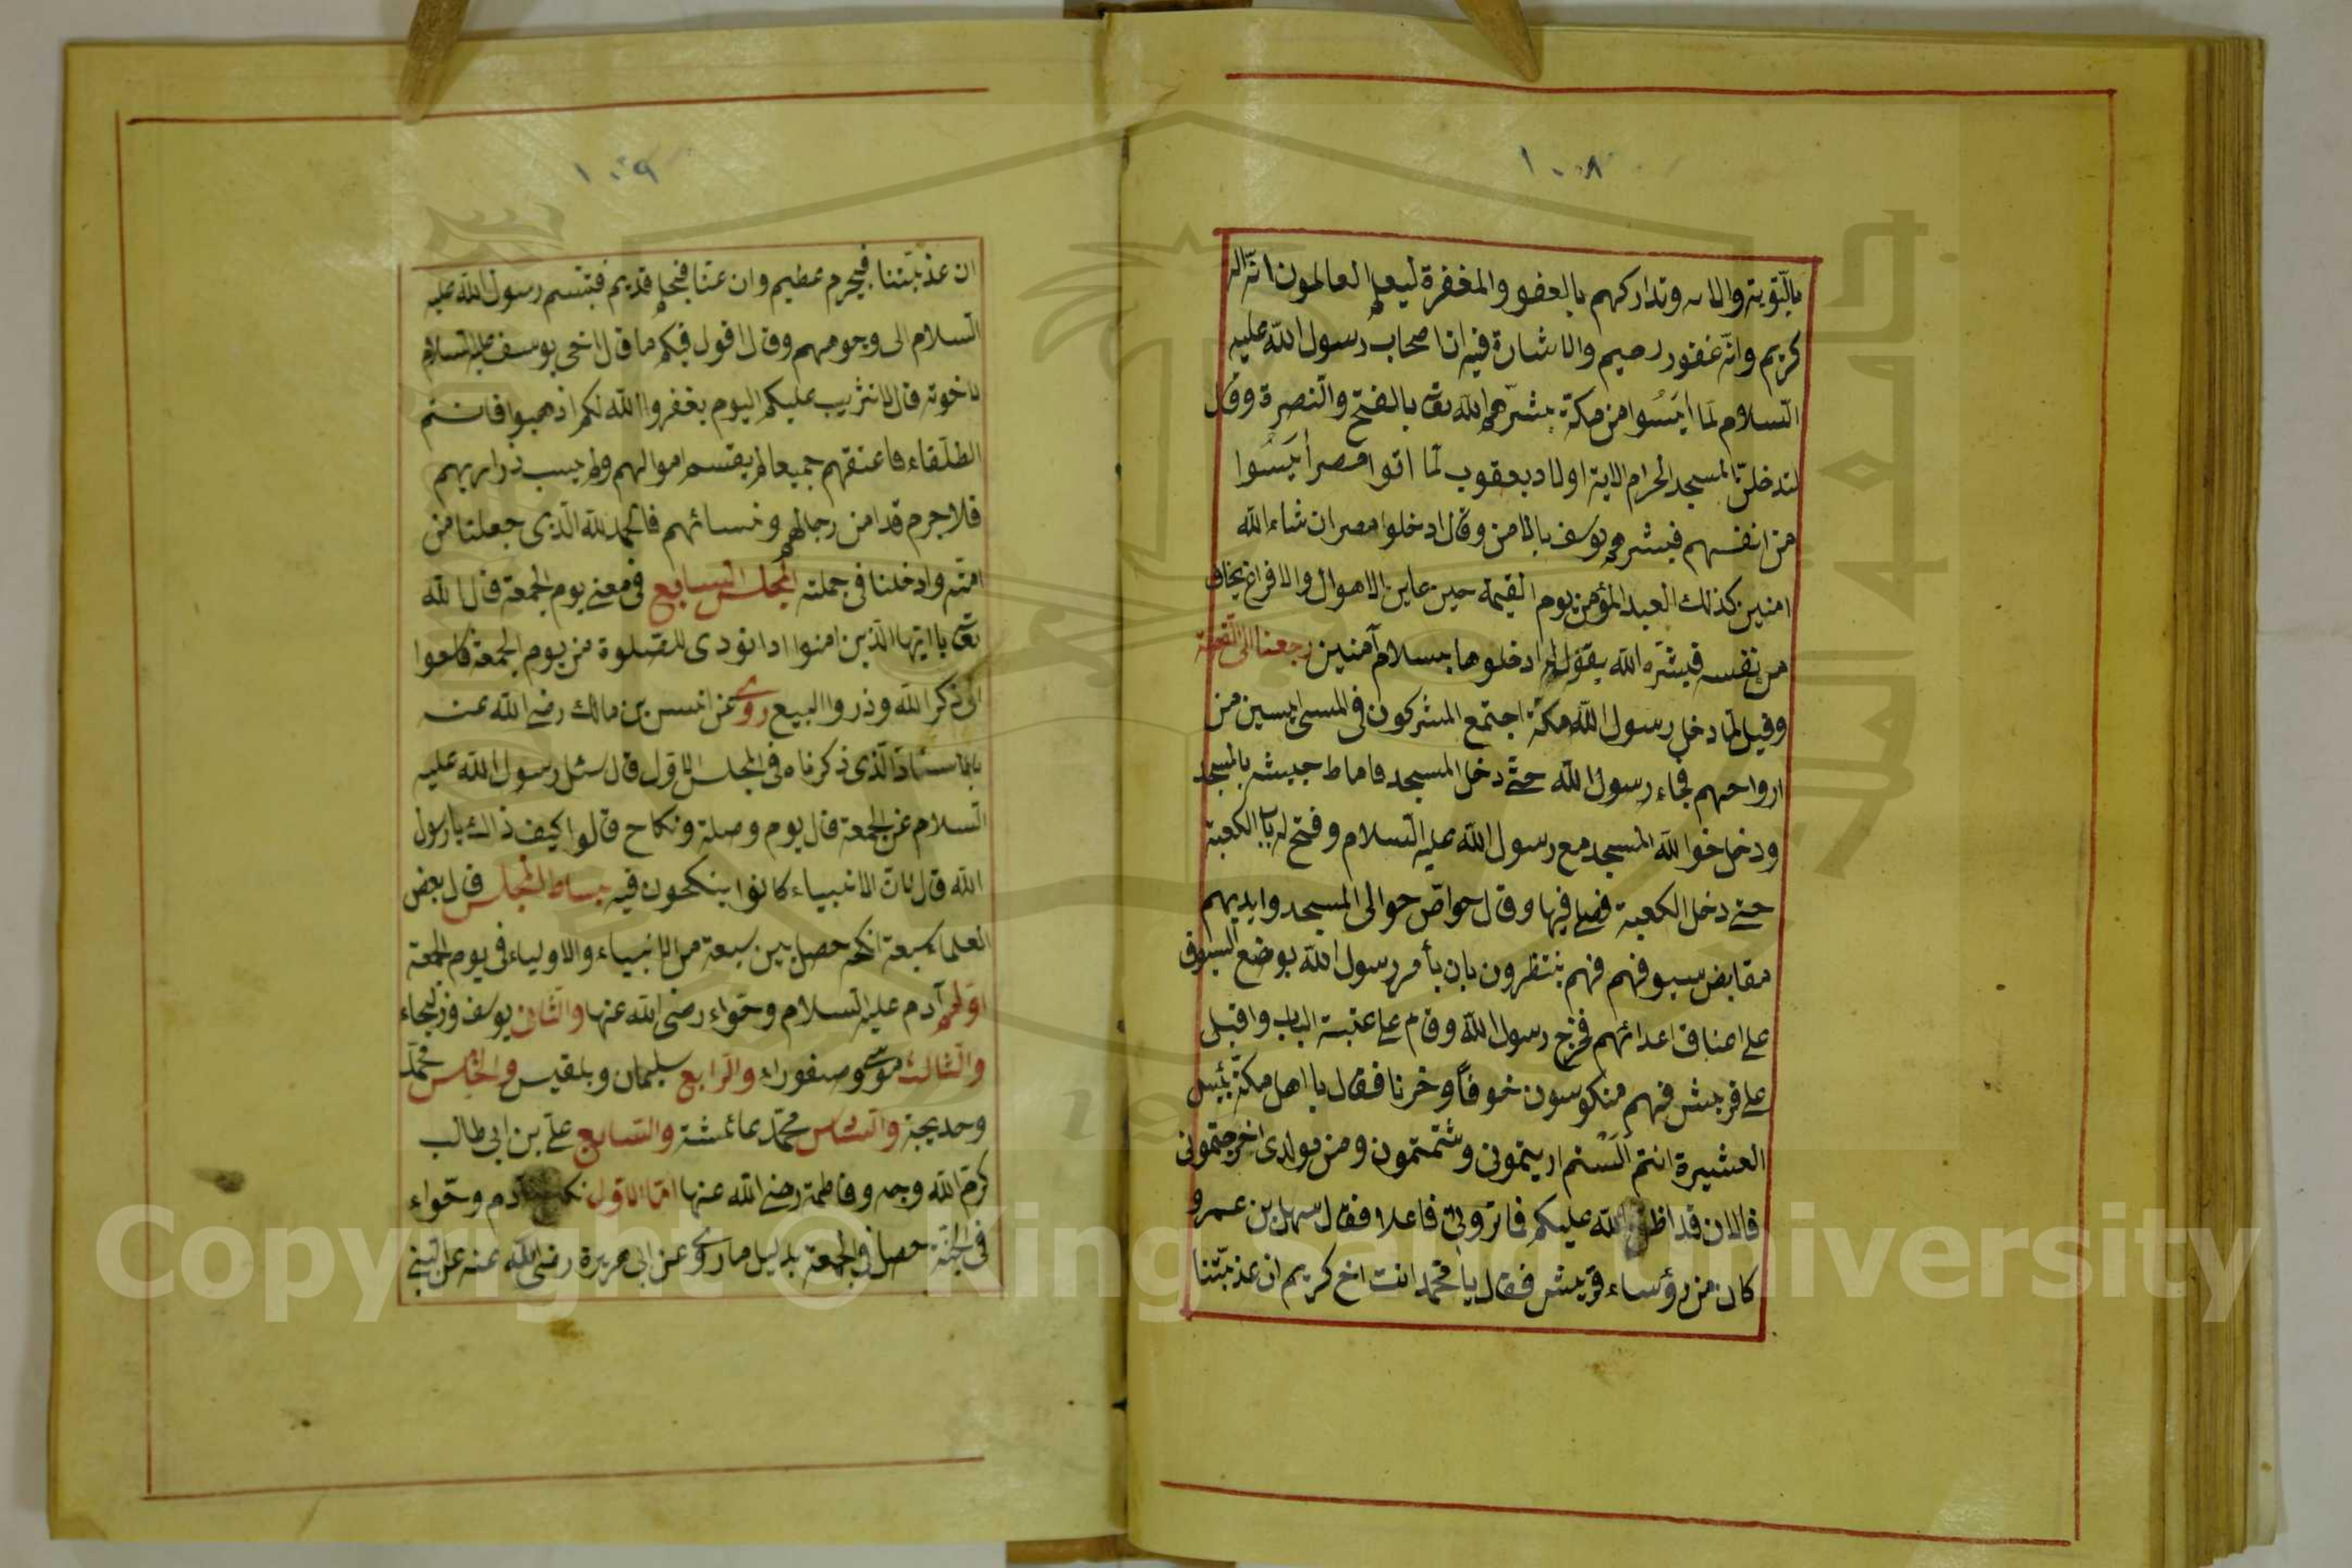 ١٠٨
بالتوبة والانابة وتداركهم بالعفو والمغفرة ليعلم العالمون انه اله
كريم وانه غفور رحيم والاشارة فيه ان اصحاب رسول الله عليه
السلام لما أيسوا من مكة بشرهم الله تعالى بالفتح والنصرة وقال
لتدخلن المسجد الحرام الاية اولاد يعقوب لما اتوا مصر أيسوا
من انفسهم فبشرهم يوسف بالامن وقال ادخلوا مصر ان شاء الله
امنين كذلك العبد المؤمن يوم القيمة حين عاين الاهوال والافزاع يخاف
من نفسه فيبشره الله بقوله ادخلوها بسلام آمنين رجعنا الى القصة
وقيل لما دخل رسول الله مكة اجتمع المشركون في المسجد آيسين من
ارواحهم فجاء رسول الله حتى دخل المسجد فاحاط جيشه بالمسجد
ودخل خواص المسجد مع رسول الله عليه السلام وفتح له باب الكعبة
حتى دخل الكعبة فصلى فيها وقال خواص حوالى المسجد وايديهم
مقابض سيوفهم فهم ينتظرون بان يأمر رسول الله بوضع السيوف
على اعناق اعدائهم فخرج رسول الله وقام على عتبة الباب واقبل
على قريش فهم منكوسون خوفا وحزنا فقال يا اهل مكة بئس
العشيرة انتم ألستم اذيتمونى وشتمتمون ومن مولدى اخرجتمونى
فالان قد الله عليكم فما ترونى فاعلا فقال سهل بن عمرو
كان من رؤساء قريش فقال يا محمد انت اخ كريم ان عذبتنا
١٠٩
ان عذبتنا فبجرم عظيم وان عفتنا فبحلم قديم فتبسم رسول الله عليه
السلام الى وجوههم وقال اقول فيكم ما قال اخى يوسف عليه السلام
لاخوته قال لا تثريب عليكم اليوم يغفروا الله لكم اذهبوا فانتم
الطلقاء فاعتقهم جميعا لم يقتسم اموالهم ولم يسب ذراريهم
فلا جرم قد امن رجالهم ونسائهم فالحمد لله الذى جعلنا من
امته وادخلنا فى جملته المجلس السابع فى معنى يوم الجمعة قال الله
تعالى يا ايها الذين امنوا اذا نودى للصلوة من يوم الجمعة فاسعوا
الى ذكر الله وذروا البيع روى عن انس بن مالك رضى الله عنه
بالاسناد الذى ذكرناه فى المجلس الاول قال سئل رسول الله عليه
السلام عن الجمعة قال يوم وصلة ونكاح قالوا كيف ذاك يا رسول
الله قال لان الانبياء كانوا ينكحون فيه بساط المجلس قال بعض
العلماء سبعة انكحه حصل بين سبعة من الانبياء والاولياء فى يوم الجمعة
اولهم آدم عليه السلام وحواء رضى الله عنها والثانى يوسف وزليخاء
والثالث موسى وصفوراء والرابع سليمان وبلقيس والخامس محمد
وخديجة والسادس محمد عائشة والسابع على بن ابى طالب
كرم الله وجهه وفاطمة رضى الله عنها اما الاول آدم وحواء
فى الجنة حصل فى الجمعة بدليل ما روى عن ابى هريرة رضى الله عنه عن النبى
Copyright © King Saud University